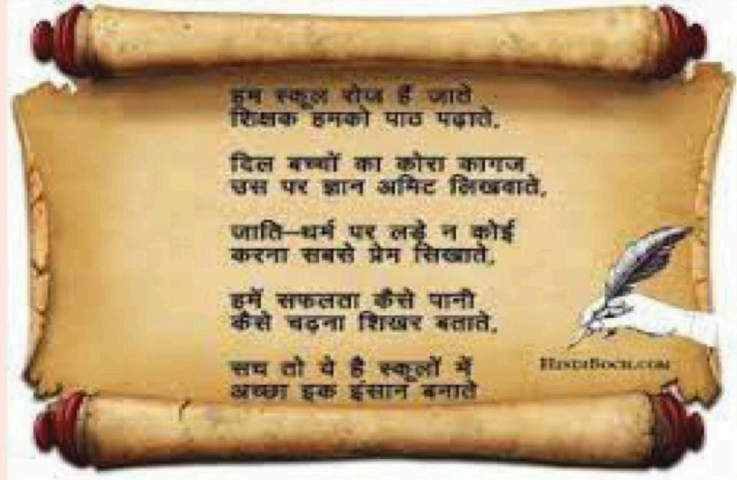 हम स्कूल रोज हैं जाते
शिक्षक हमको पाठ पढ़ाते,
दिल बच्चों का कोरा कागज
उस पर ज्ञान अमिट लिखवाते,
जाति-धर्म पर लड़े न कोई
करना सबसे प्रेम सिखाते,
हमें सफलता कैसे पानी
कैसे चढ़ना शिखर बताते,
सच तो ये है स्कूलों में
अच्छा इक इंसान बनाते
HINDISOCH.COM